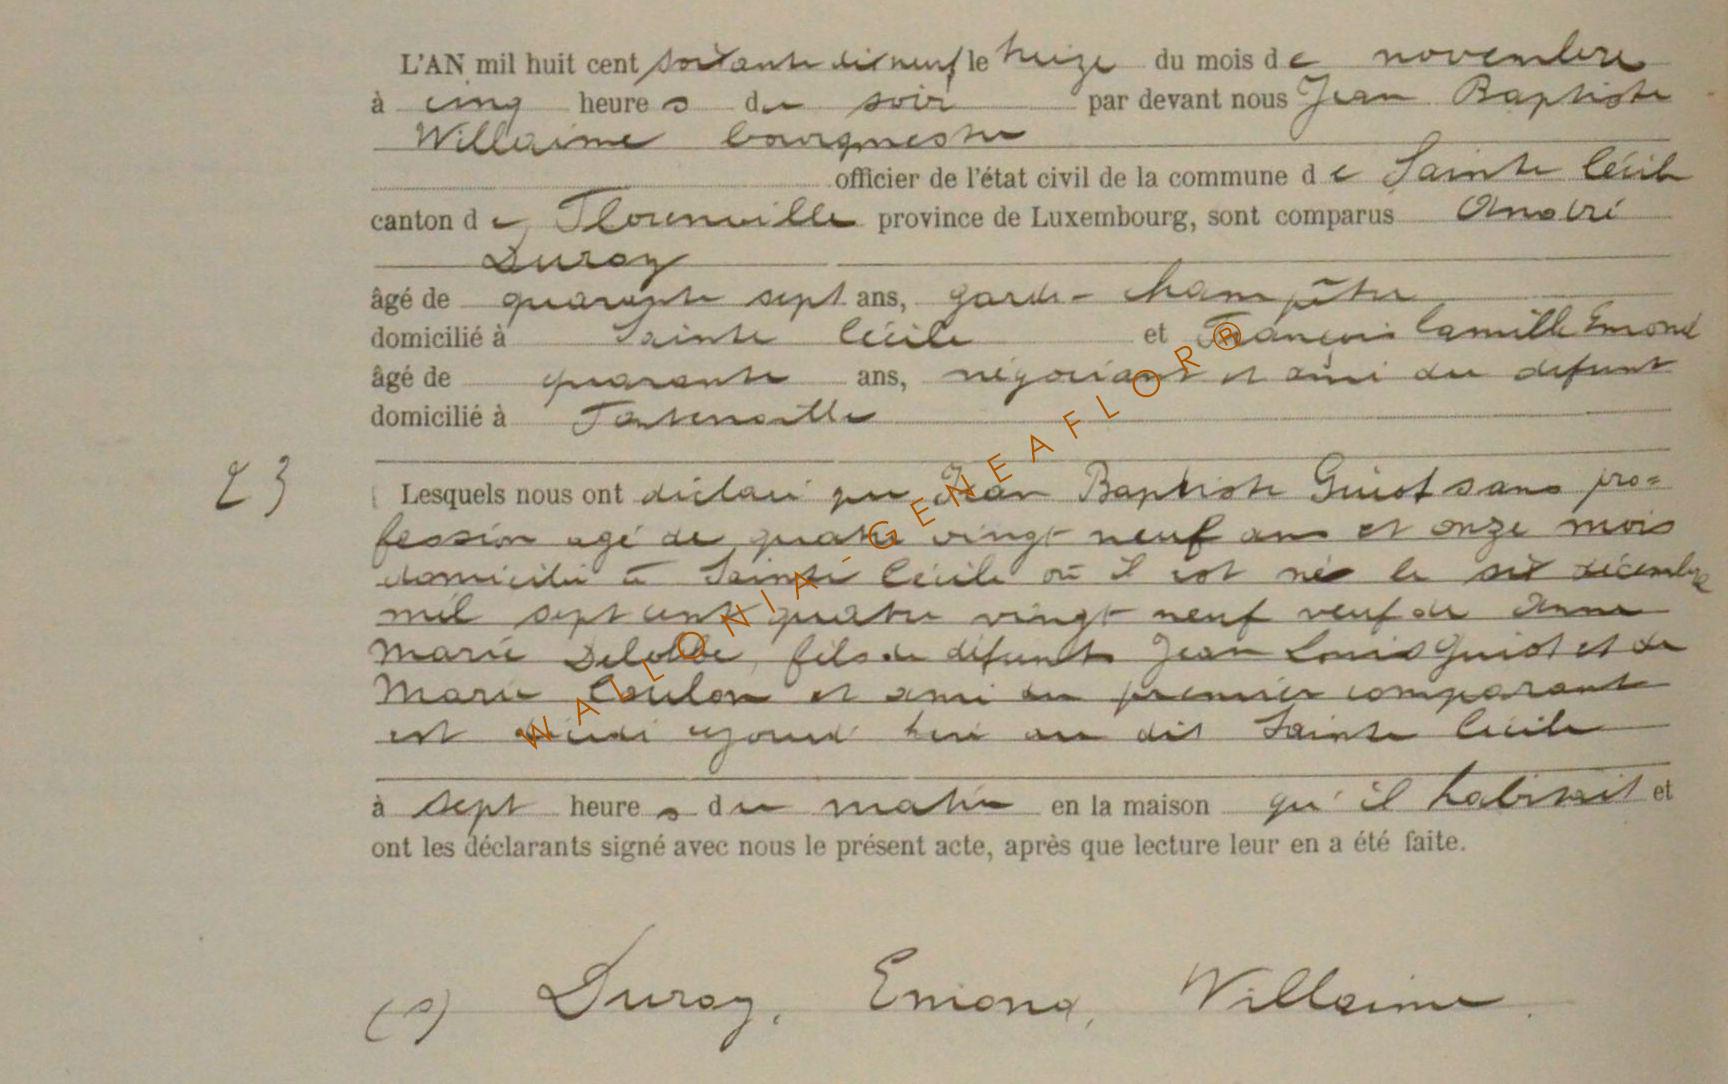 L'AN mil huit cent soixante dix neuf le treize du mois de novembre
à cinq heures du soir par devant nous Jean Baptiste
Willaime bourgmestre
officier de l'état civil de la commune de Sainte Cécile
canton de Florenville province de Luxembourg, sont comparus André
Duroy
âgé de quarante sept ans, garde-champêtre
domicilié à Sainte Cécile et François Camille Emond
âgé de quarante ans, négociant et ami du defunt
domicilié à Fontenoille
23
Lesquels nous ont déclaré que Jean Baptiste Guiot sans pro=
fession agé de quatre vingt neuf ans et onze mois
domicilié à Sainte Cécile où il est né le six décembre
mil sept cent quatre vingt neuf veuf de Anne
Marie Delobbe, fils de défunts Jean Louis Guiot et de
Marie Coulon et ami du premier comparant
est décédé cejourd'hui au dit Sainte Cécile
à sept heures du matin en la maison qu'il habitait et
ont les déclarants signé avec nous le présent acte, après que lecture leur en a été faite.
(s) Duroy, Emond, Willaime.
WALLONIA-GENEAFLOR®